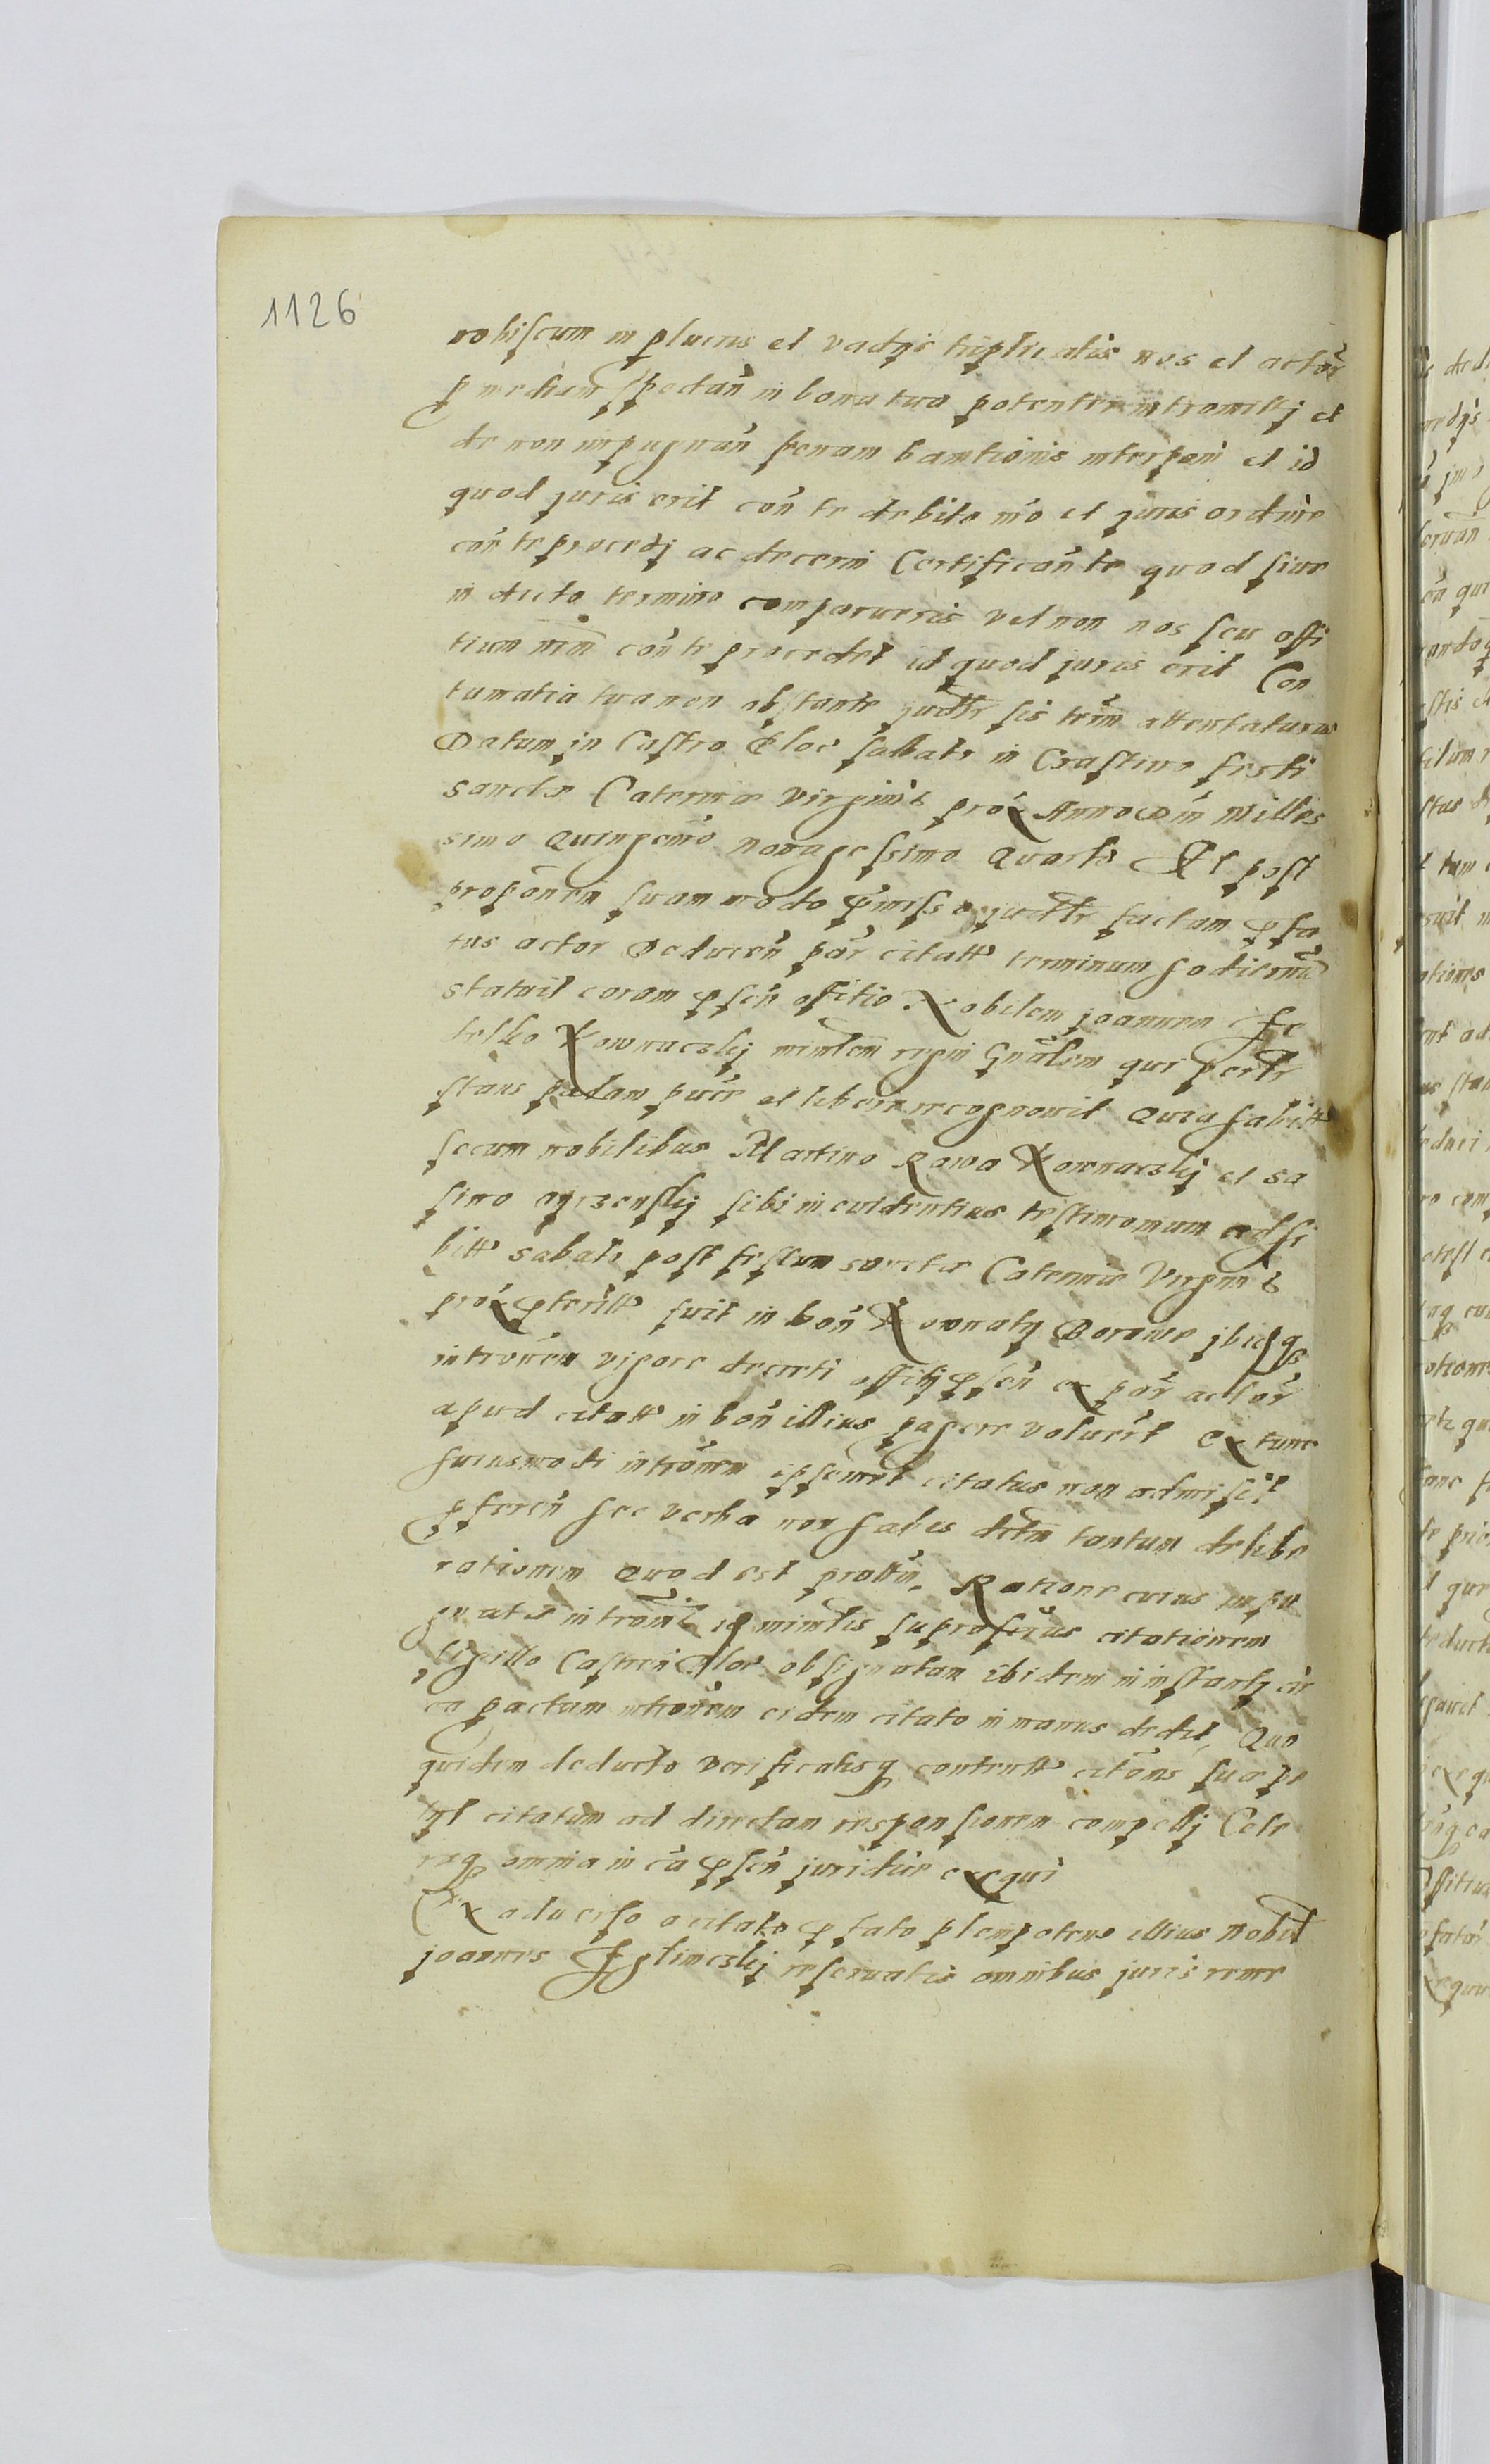 1126
nobiscum in plucris et vadijs triplicatis nos et actor̃
p mediam spectañ in bona tua potenter intromittj et
de non impugnañ penam bannitionis interponi et id
quod juris erit coñ te debito m̃o et juris ordine
coñ te procedj ac decerni Certificañ te quod siue
in dicto termino comparueris vel non nos seu offi
tium nr̃m coñ te procedet id quod juris erit Con
tumatia tua non obstante judtr sis ter̃m attentaturus
Datum in Castro Ploc sabato in Crastino festi
sanctæ Caterinæ Virginis prox̃ Anno Dñi Milles
simo Quingemo nonagessimo Quarto Et post
propõnem suam modo p̃misso judtr factam p̃fa
tus actor Deduceñ par̃ citatt terminum hodiernũ
statuit coram p̃señ offitio Nobilem joannem
Kownaczkij minlem regni gñalem qui
stans palam puce et libere recognouit Quia habitt
secum nobilibus Martino Rawa Kownaczkij et
sibi in euidentius testimonium adhi
bitt sabato post festum sanctæ Caterinæ Virginis
prox̃ p̃teritt fuit in boñ Kownaty Borowe jbidq
intromnem vigore decreti offitij p̃señ ex par̃ actor̃
apud citatt in boñ illius pagere voluerit Ex tunc
huiusmodi introm̃nem ipsemet citatus non admisit
p̃fereñ hec verba non habes tantum delibe
rationem Quod est Ratione cuius impu
gnatæ introm̃ is minlis supraferius citationem
sigillo Castreñ Ploc obsignatam ibidem in instantj cir
ca pactam introm̃nem eidem citato in manus dedit, Quo
quidem deducto verificatisq contentt citõnis suæ pe
tyt citatum ad directam responsionem compellj Cete
raq omnia in cã p̃señ juridice exequi
Ex aduerso a citato p̃fato plenipotens illius Nobil
joannes reseruatis omnibus juris reme